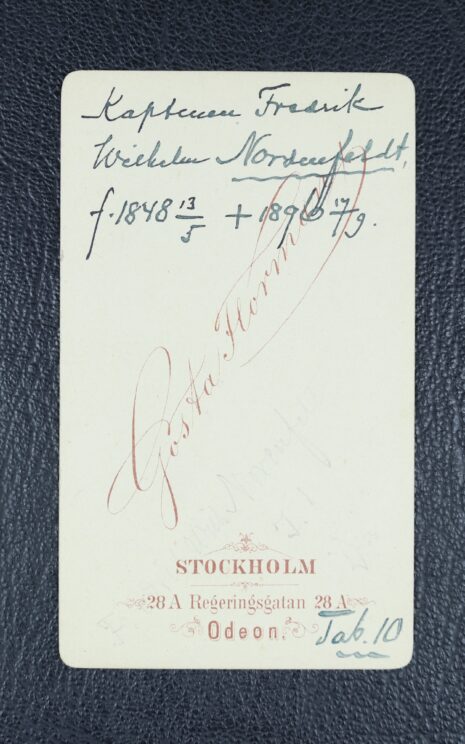 Kaptenen Fredrik
Wilhelm Nordenfeldt,
f. 1848 13/5 + 1896 17/9.
Gösta Florman
STOCKHOLM
28 A Regeringsgatan 28 A
Odeon.
Tab. 10